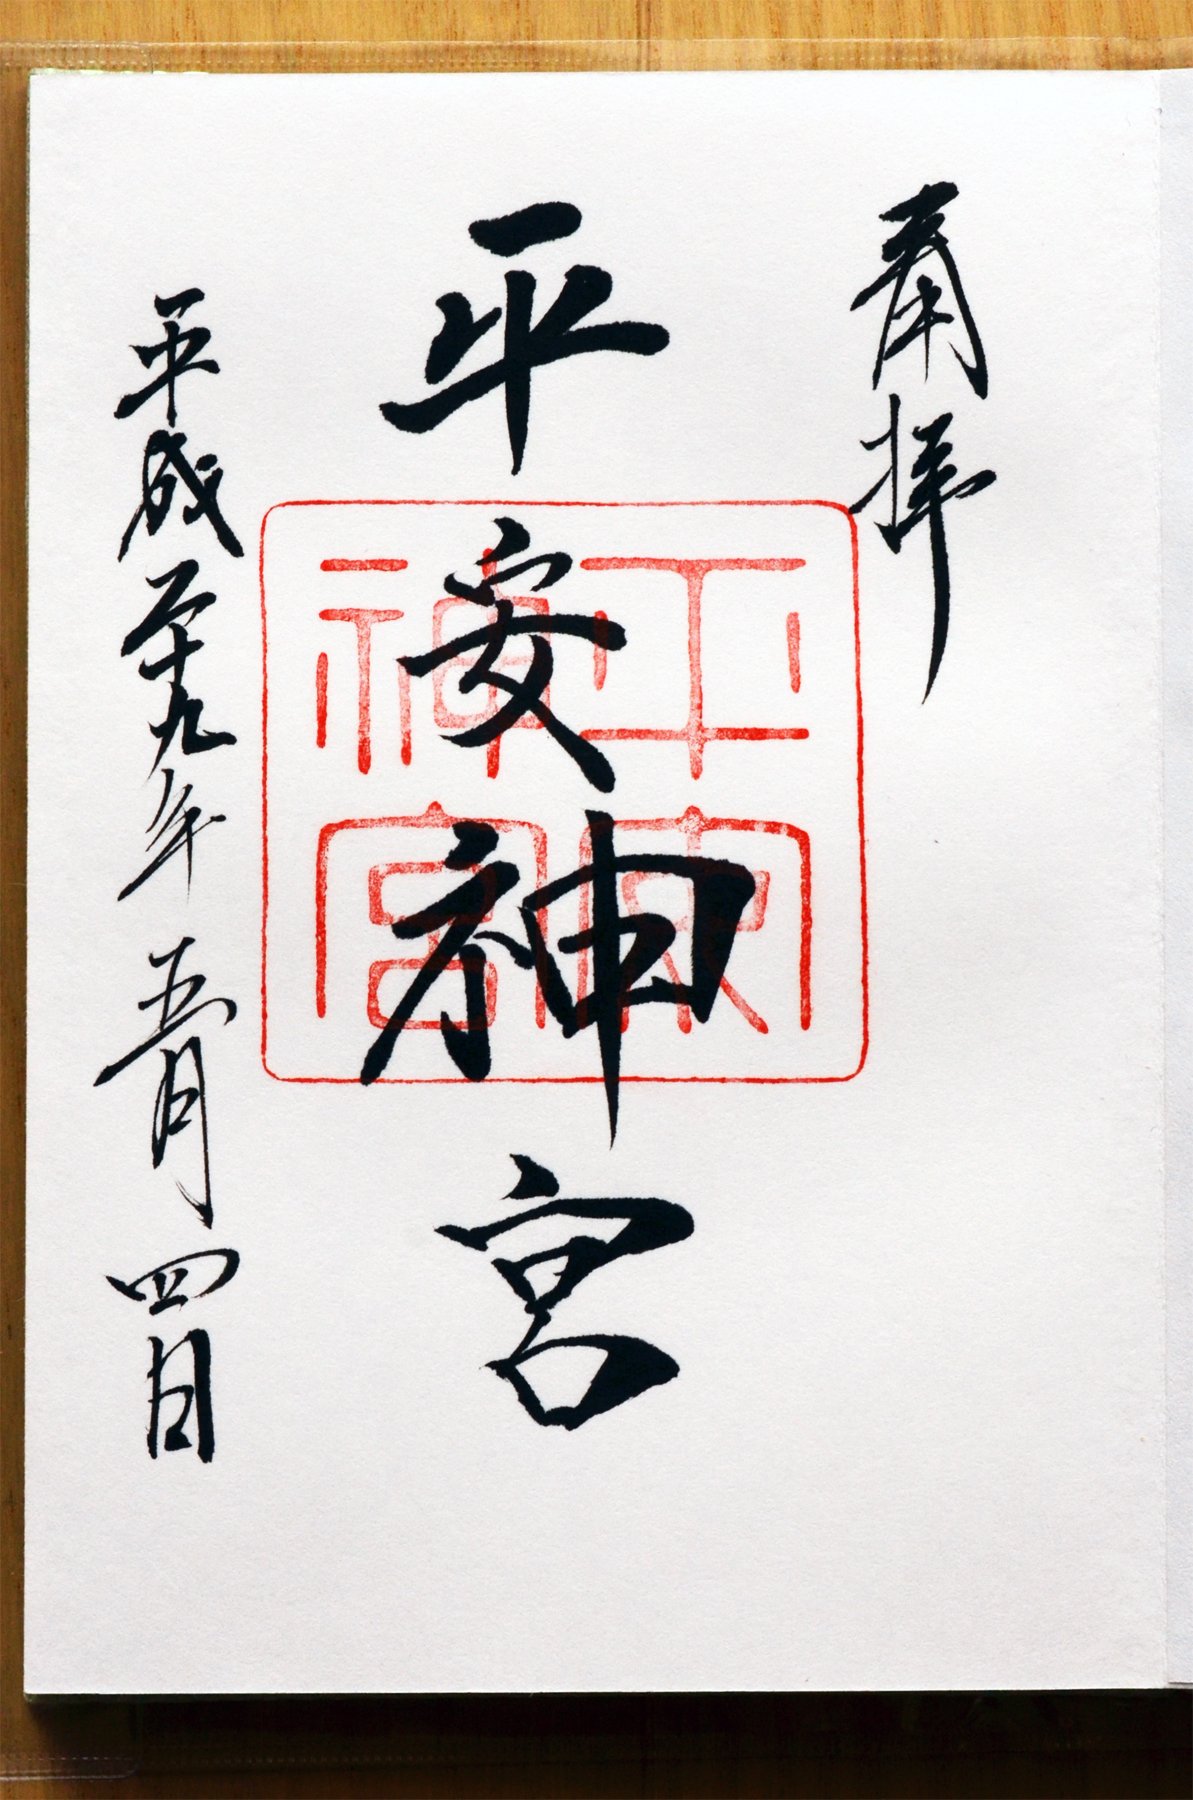 奉拝
平安神宮
平安神宮
平成二十九年五月四日